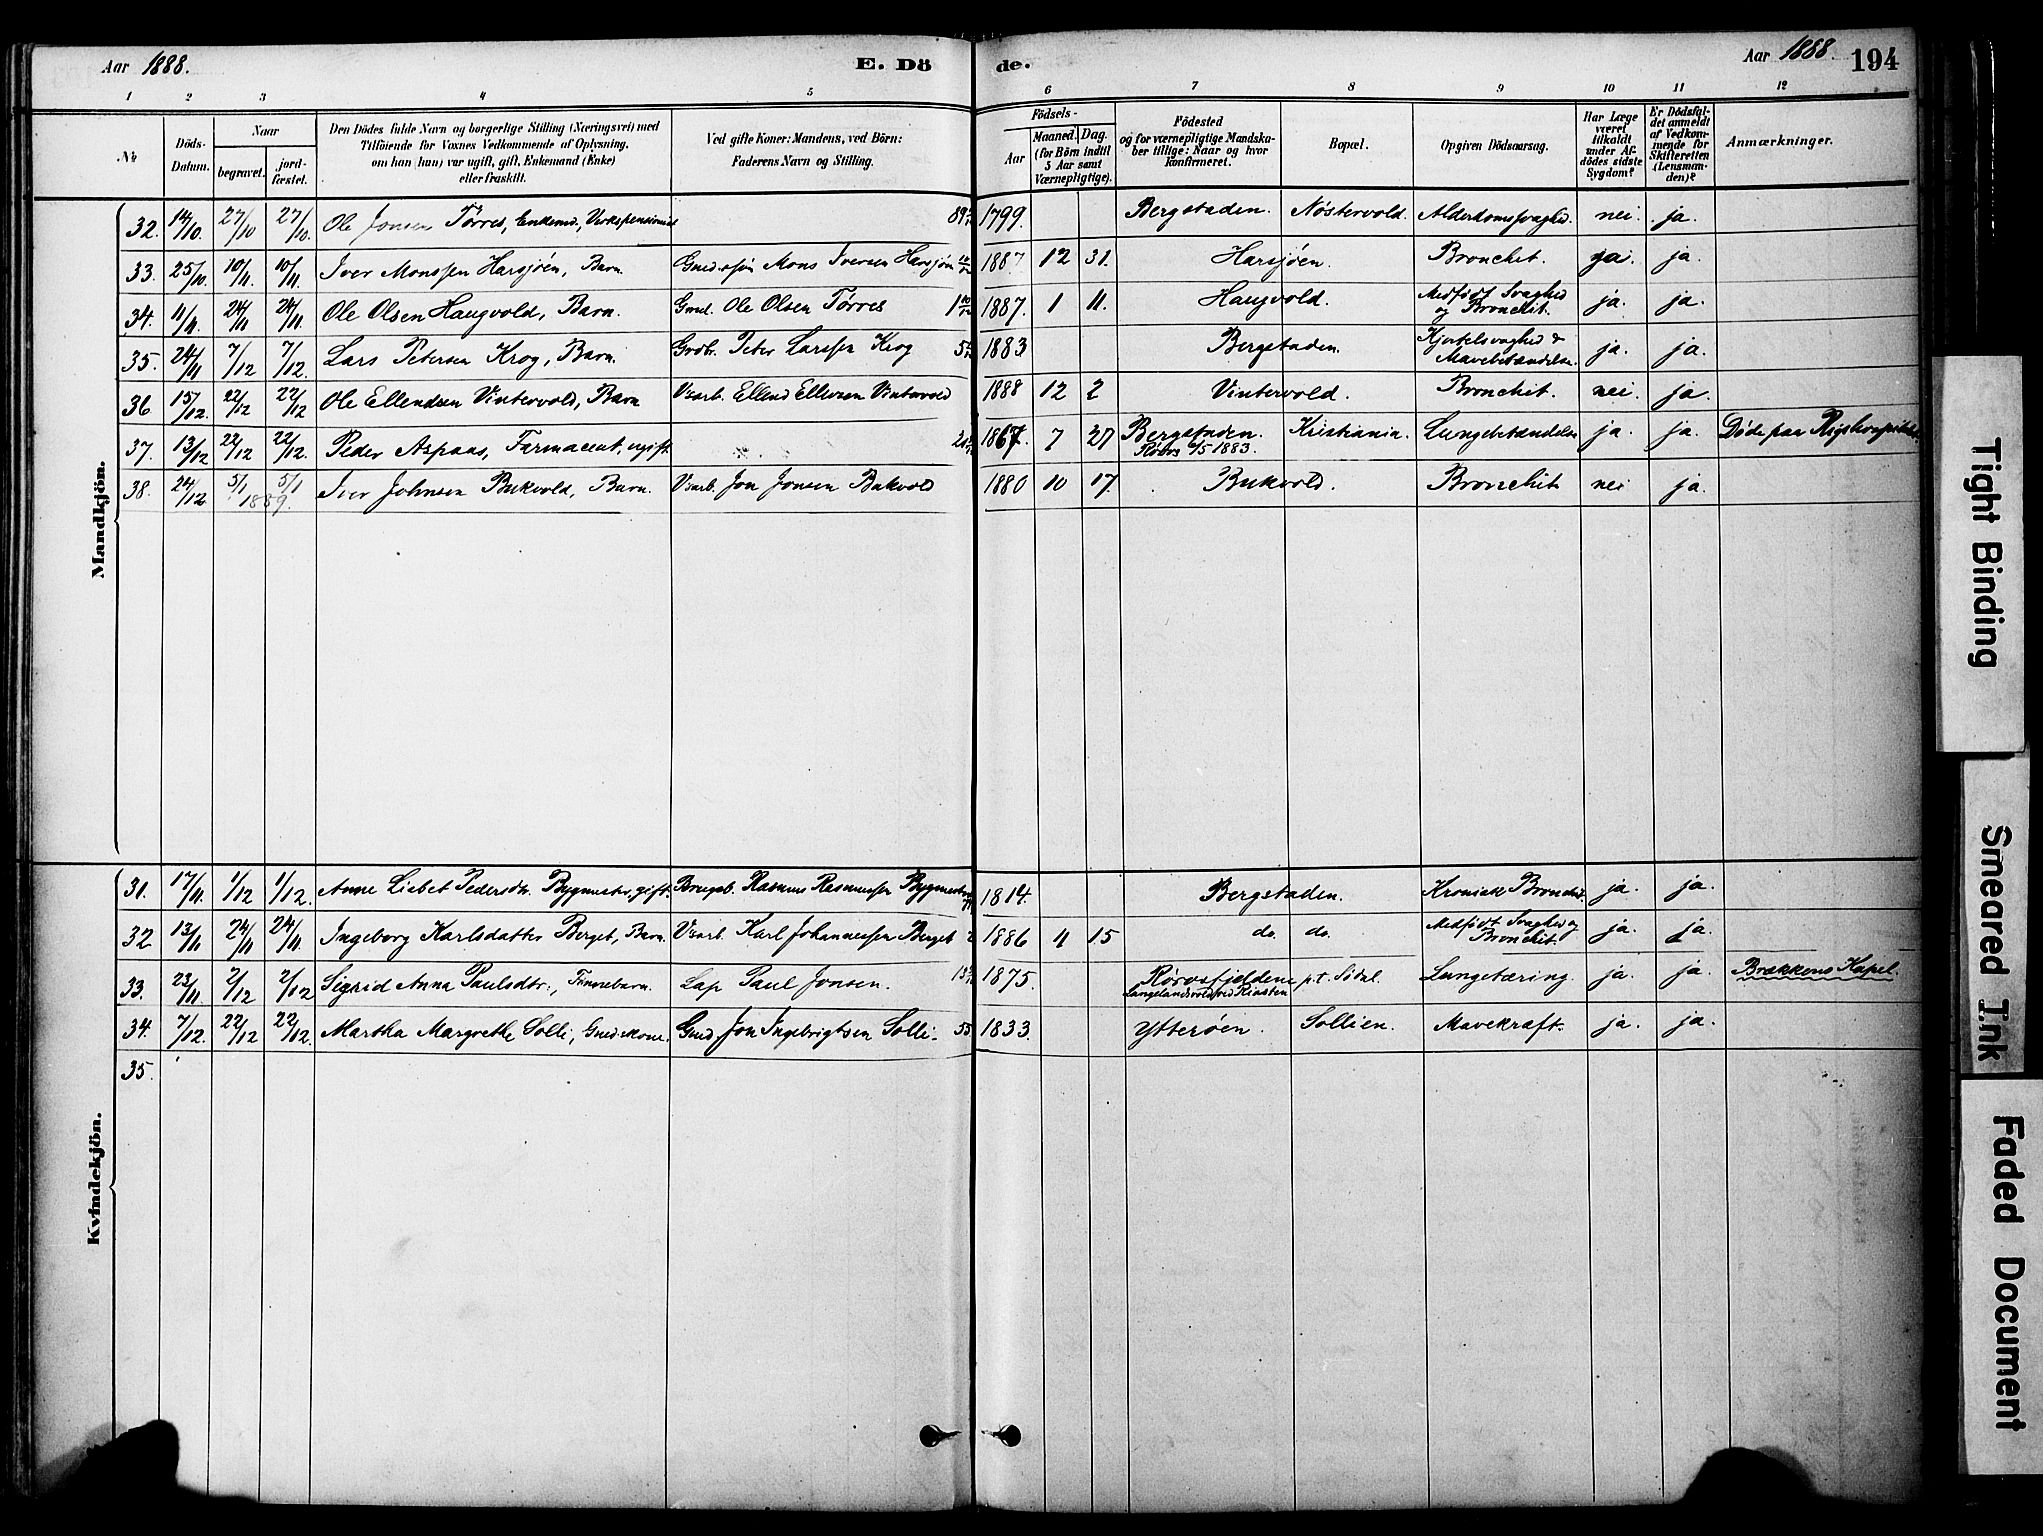 Aar 1888. E. Dö de. Aar 1888. 194
1 2 3 4 5 6 7 8 9 10 11 12
No.
Döds-Datum.
Naar
begravet.
jord-fæstet.
Den Dödes fulde Navn og borgerlige Stilling (Næringsvei) med
Tilföiende for Voxnes Vedkommende af Oplysning,
om han (hun) var ugift, gift, Enkemand (Enke)
eller fraskilt.
Ved gifte Koner: Mandens, ved Börn:
Faderens Navn og Stilling.
Födsels-
Aar
Maaned. Dag.
(for Börn indtil
5 Aar samt
Værnepligtige).
Födested
og for værnepligtige Mandska-
ber tillige: Naar og hvor
konfirmeret.
Bopæl.
Opgiven Dödsaarsag.
Har Læge
været
tilkaldt
under Af-
dödes sidste
Sygdom?
Er Dödsfal-
det anmeldt
af Vedkom-
mende for
Skifteretten
(Lensman-
den)?
Anmærkninger.
Mandkjön.
32. 14/10. 27/10 27/10. Ole Jonsen Törres, Enkemd, Verkspensionist 1799. Bergstaden. Nöstervold. Alderdomssvaghed. nei. ja.
33. 25/10. 10/11. 10/11. Iver Monssen Harsjöen, Barn Mons Iversen Harsjöen 1887 12 31. Harsjöen. Bronchit. ja. ja.
34. 11/11. 24/11 24/11. Ole Olsen Haugvold, Barn. Gmd. Ole Olsen Törres 1887. 1 11. Haugvold. Medfödt Svaghed og Bronchit. ja. ja.
35. 24/11 7/12 7/12. Lars Petersen Krog, Barn. Grdbr. Peter Larssen Krog 1883 Bergstaden. Kjertelsvaghed & Mavebetændelse. ja. ja.
36 15/12. 22/12 22/12 Ole Ellendsen Vintervold, Barn Varb. Ellend Ellevsen Vintervold 1888 12 2 Vintervold. Bronchit. nei. ja.
37. 13/12 22/12 22/12. Peder Aspaas, Farmaceut, ugift. 1867. 7 27 Bergstaden. Röros 6/5 1883. Kristiania. Lungebetændelse ja. ja. Döde paa Rigshospitalet.
38. 24/12 5/1 5/1 1889. Iver Johnsen Bukvold, Barn. Varb. Jon Jonsen Bukvold 1880 10 17. Bukvold. Bronchit nei ja.
Kvindekjön.
31. 17/11. 1/12 1/12. Anne Lisbet Pedersdtr. Bygmester, gift. Brugsb. Rasmus Rasmussen Bygmester 1814. Bergstaden. Kronisk Bronchit. ja. ja.
32 13/11 24/11 24/11. Ingeborg Karlsdatter Berget, Barn. Varb. Karl Johannessen Berget 2 1886 11 15 do. do. Medfödt Svaghed og Bronchit. ja. ja.
33. 23/11 2/12 2/12 Sigrid Anna Paulsdtr., Finnebarn. Lap Paul Jonsen. 1875. Rörosfjeldene Langelandsvold ved Riasten p.t. Södal. Lungetæring. ja. ja. Brækkens Kapel.
34. 7/12. 22/12 22/12. Martha Margrethe Solli, Gmdskone. Gmd. Jon Ingebrigtsen Solli. 55 1833. Ytteröen. Sollien. Mavekræft. ja. ja.
35.
Tight Binding
Smeared Ink
Faded Document